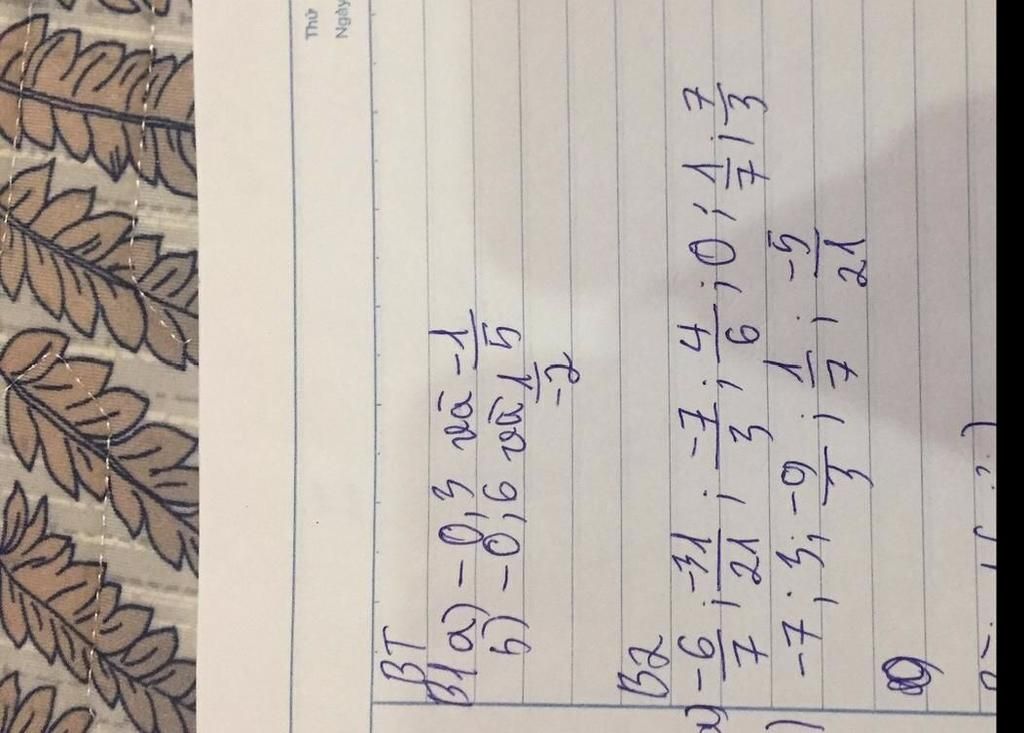 Thứ
Ngày
BT
B1 a) -0,3 và -1/5
b) -0,6 và 1/-2
B2
a) -6/7 ; -31/21 ; -7/3 ; 4/6 ; 0 ; 1/7 ; 7/3
) -7 ; 3 ; -9/3 ; 1/7 ; -5/21